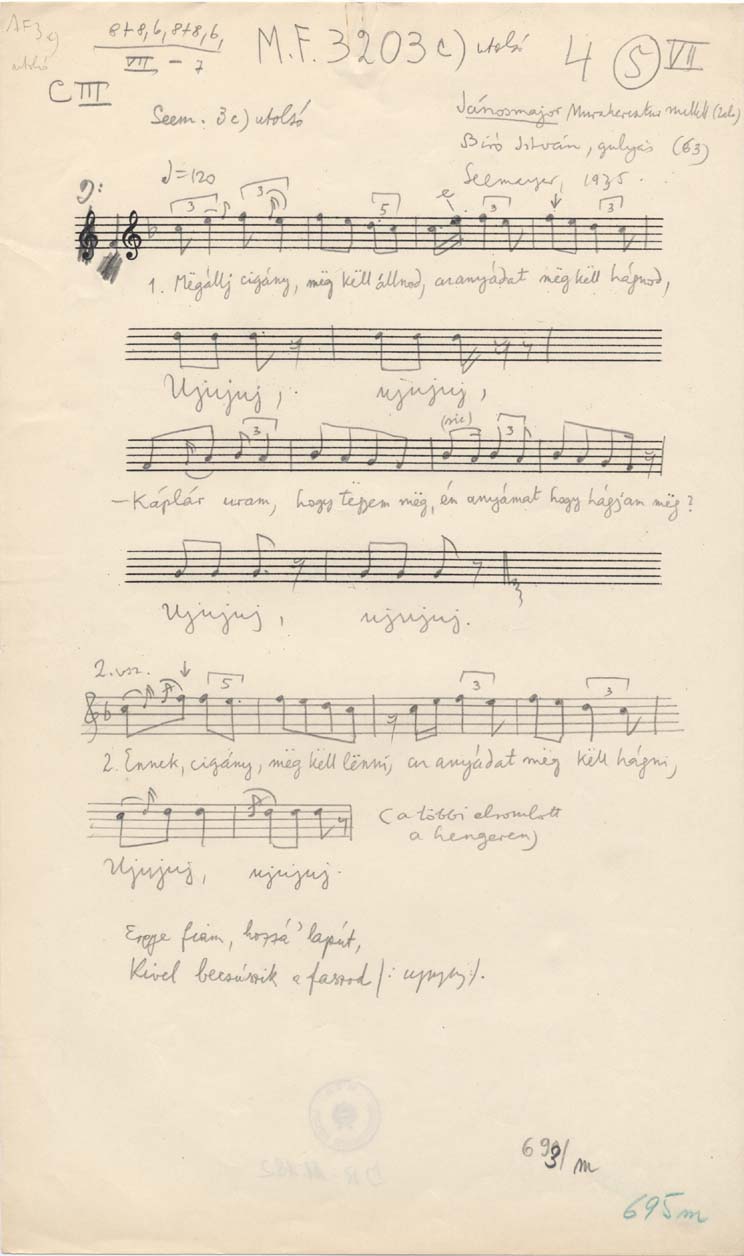 8+8, 6, 8+8, 6,
VII – 7
M.F. 3203 c) utolsó
4 5 VII
C III
Seem. 3c) utolsó
Jánosmajor Murakeresztur mellett (Zala)
Biró István, gulyás (63)
Seemayer, 1935.
♩=120
3 3 5 e 3 3
1. Mëgállj cigány, mëg këll állnod, az anyádat mëg këll hágnod,
Ujujuj, ujujuj,
3 (sic) 3
– Káplár uram, hogy tëgyem mëg, én anyámat hogy hágjam mëg?
Ujujuj, ujujuj.
2. vsz.
5 3 3
2. Ennek, cigány, mëg këll lënni, az anyádat mëg këll hágni,
(a többi elromlott
a hengeren)
Ujujuj, ujujuj.
fiam, hozzá' lapút,
Kivel becsúszik a faszod /: ujujuj :/.
/m
695m